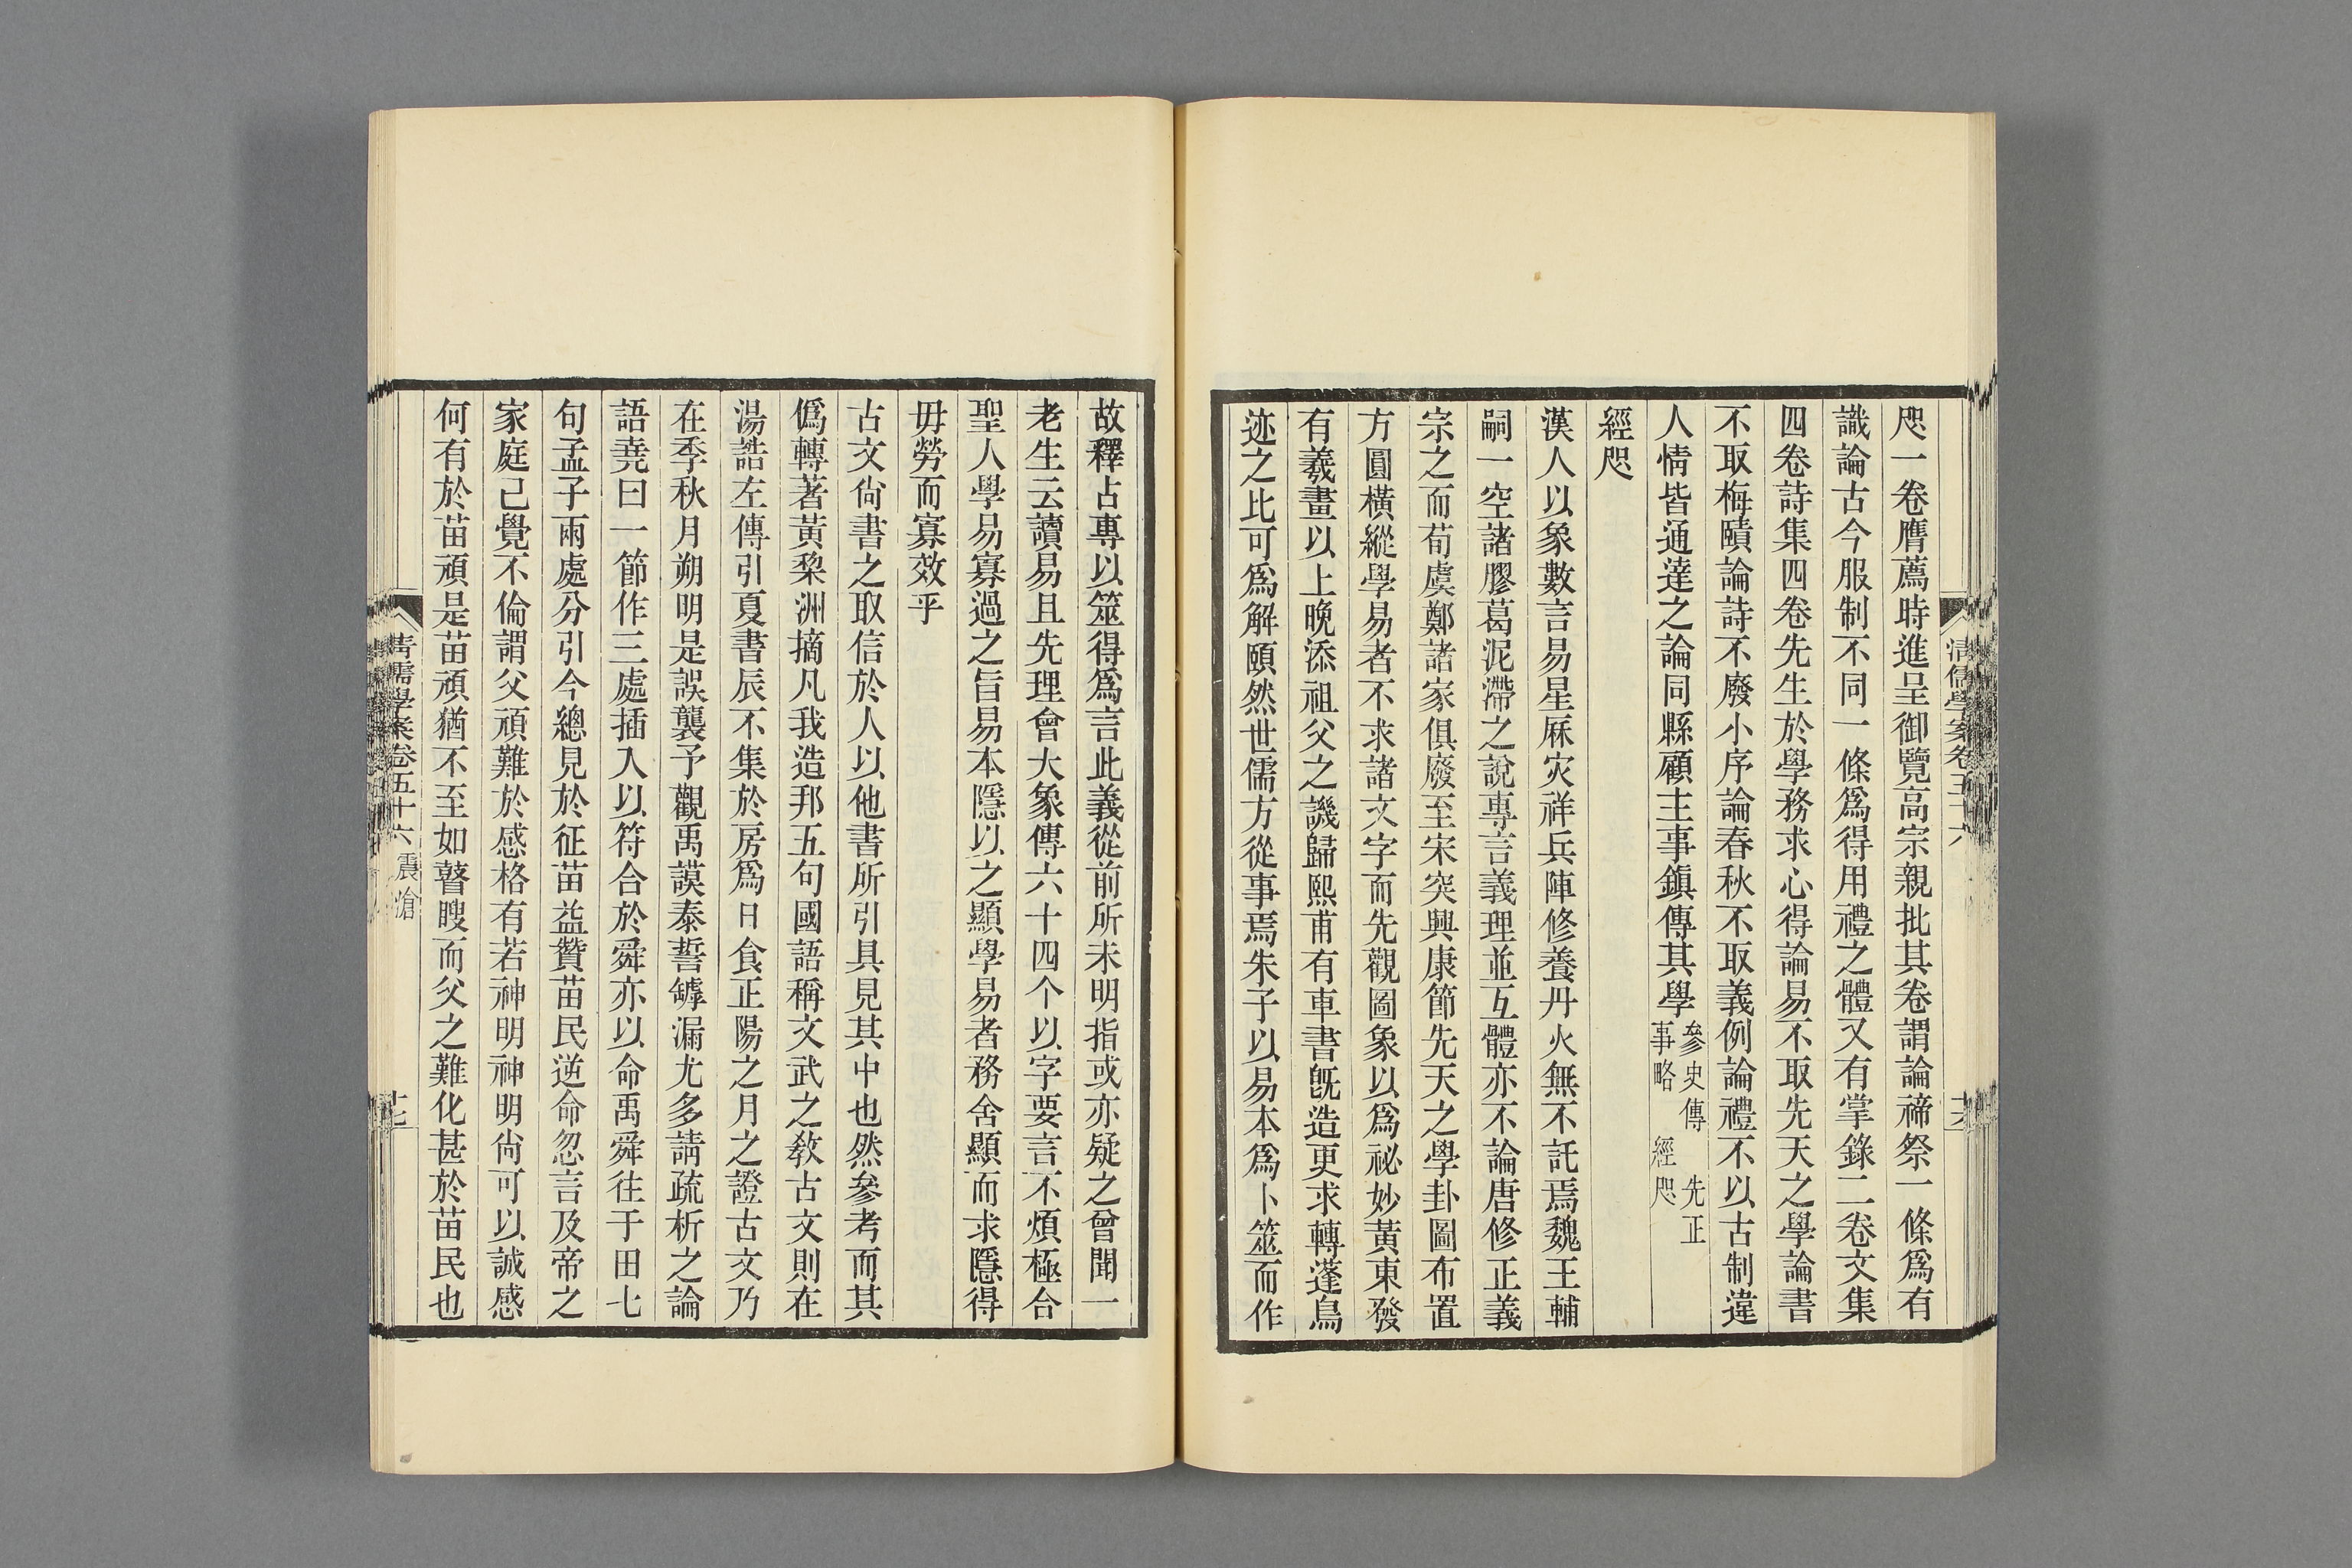 咫一卷膺薦時進呈御覽高宗親批其卷謂論禘祭一條爲有
識論古今服制不同一條爲得用禮之體又有掌錄二卷文集
四卷詩集四卷先生於學務求心得論易不取先天之學論書
不取梅賾論詩不廢小序論春秋不取義例論禮不以古制違
人情皆通達之論同縣顧主事鎮傳其學參史傳 先正
事略 經咫
經咫
漢人以象數言易星厤灾祥兵陣修養丹火無不託焉魏王輔
嗣一空諸膠葛泥滯之說專言義理並互體亦不論唐修正義
宗之而荀虞鄭諸家俱廢至宋突興康節先天之學卦圖布置
方圓橫縱學易者不求諸文字而先觀圖象以爲祕妙黃東發
有羲畫以上晚添祖父之譏歸熙甫有車書旣造更求轉蓬鳥
迹之比可爲解頤然世儒方從事焉朱子以易本爲卜筮而作
清儒學案卷五十六
故釋占專以筮得爲言此義從前所未明指或亦疑之曾聞一
老生云讀易且先理會大象傳六十四个以字要言不煩極合
聖人學易寡過之旨易本隱以之顯學易者務舍顯而求隱得
毋勞而寡效乎
古文尙書之取信於人以他書所引具見其中也然參考而其
僞轉著黃棃洲摘凡我造邦五句國語稱文武之敎古文則在
湯誥左傳引夏書辰不集於房爲日食正陽之月之證古文乃
在季秋月朔明是誤襲予觀禹謨泰誓罅漏尤多請疏析之論
語堯曰一節作三處插入以符合於舜亦以命禹舜往于田七
句孟子兩處分引今總見於征苗益贊苗民逆命忽言及帝之
家庭己覺不倫謂父頑難於感格有若神明神明尙可以誠感
何有於苗頑是苗頑猶不至如瞽瞍而父之難化甚於苗民也
清儒學案卷五十六 震滄
十七